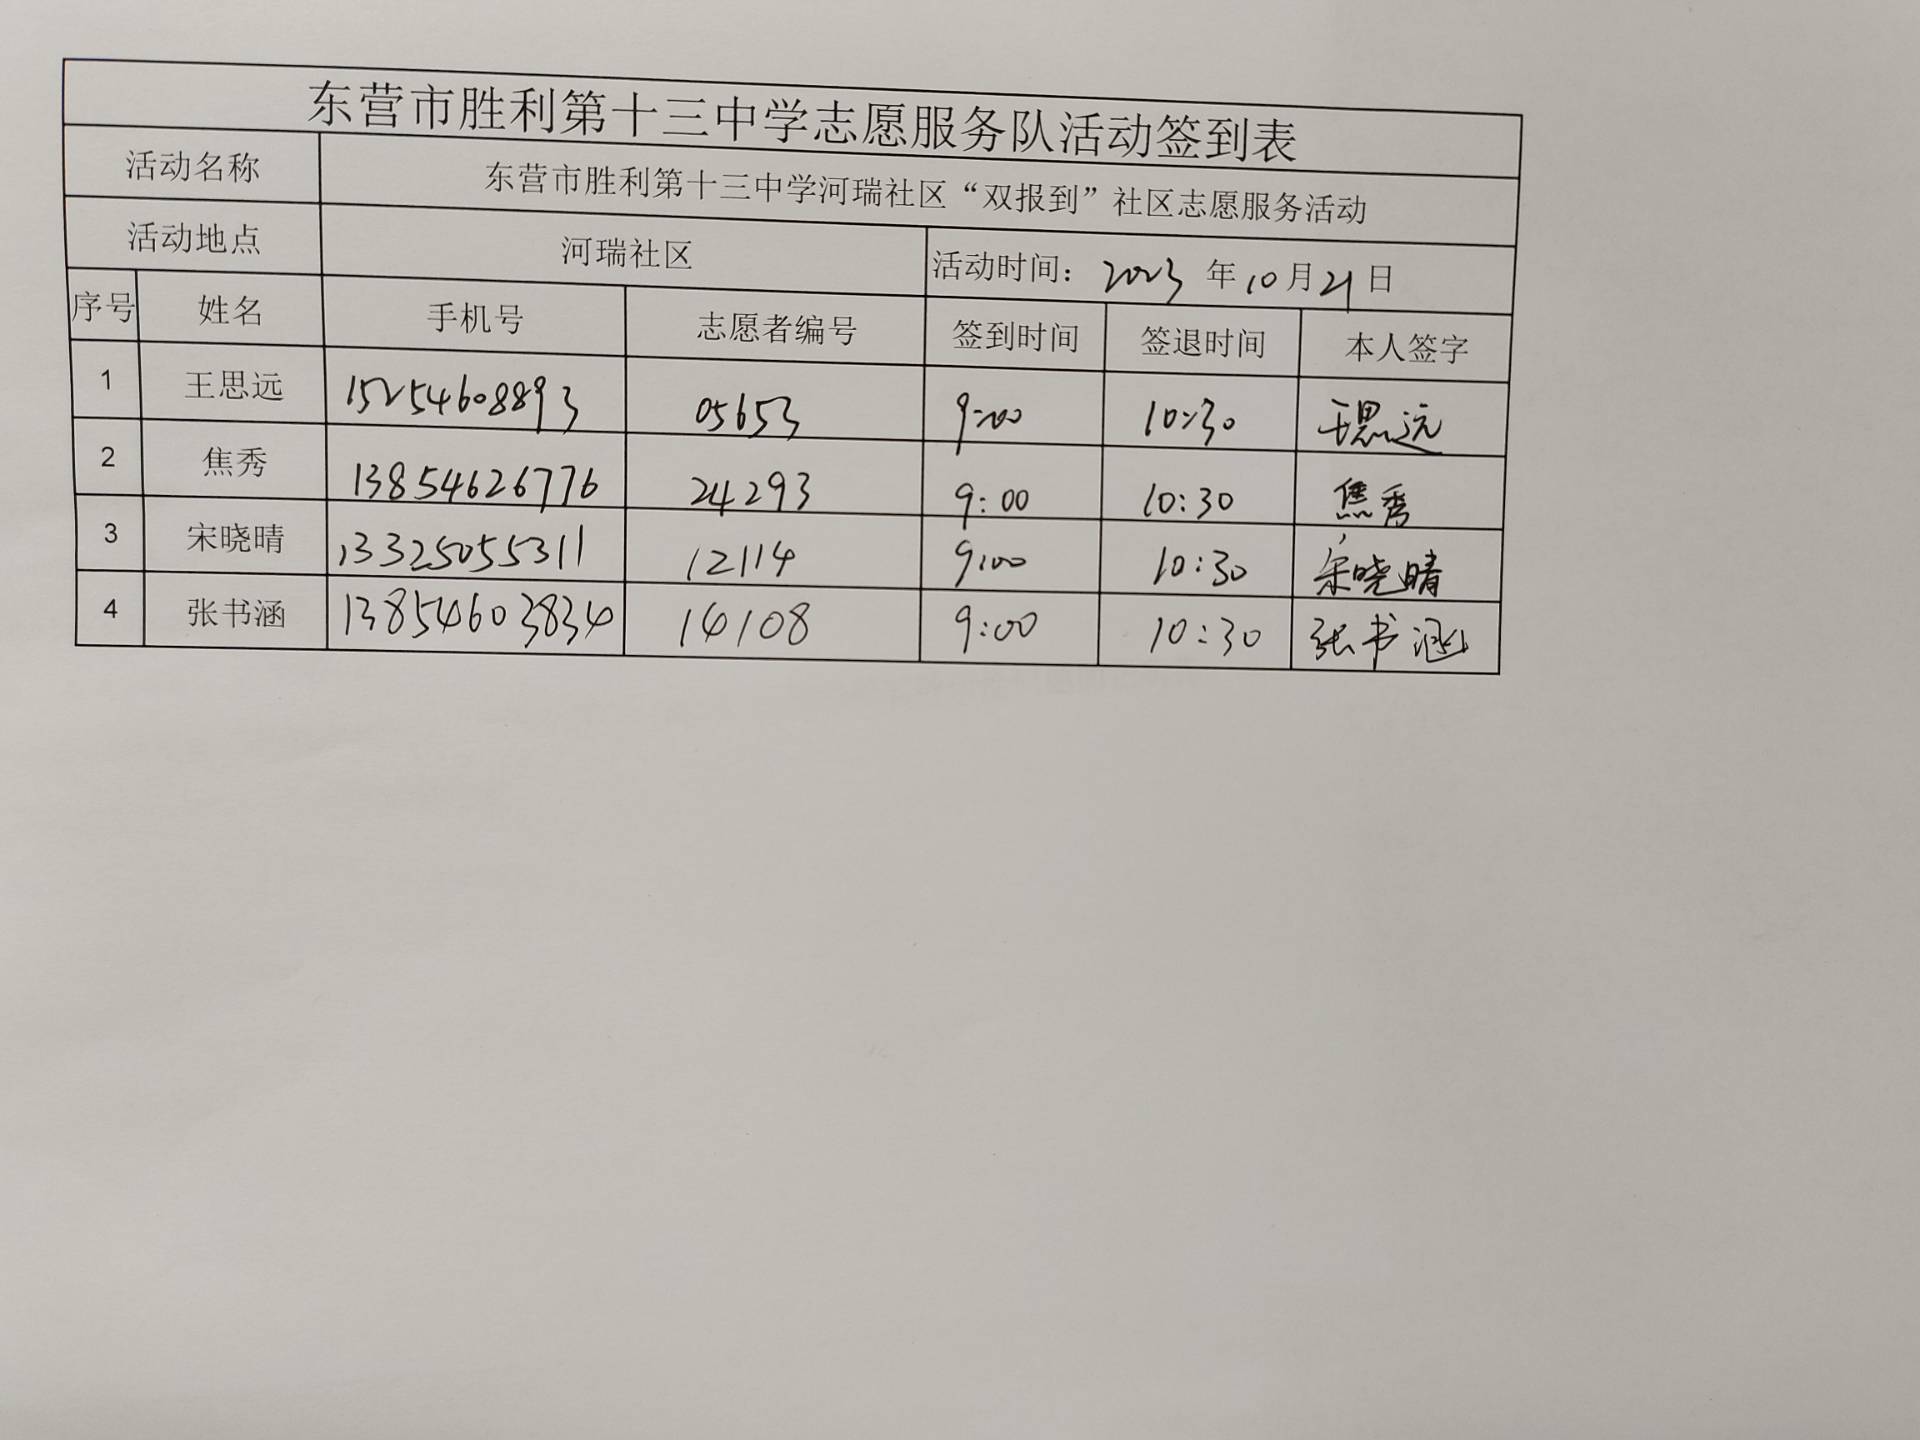 东营市胜利第十三中学志愿服务队活动签到表
活动名称 东营市胜利第十三中学河瑞社区“双报到”社区志愿服务活动
活动地点 河瑞社区 活动时间：2023 年 10 月 21 日
序号 姓名 手机号 志愿者编号 签到时间 签退时间 本人签字
1 王思远 15254608893 05653 9:00 10:30 王思远
2 焦秀 13854626776 24293 9:00 10:30 焦秀
3 宋晓晴 13325055311 12114 9:00 10:30 宋晓晴
4 张书涵 13854603834 14108 9:00 10:30 张书涵